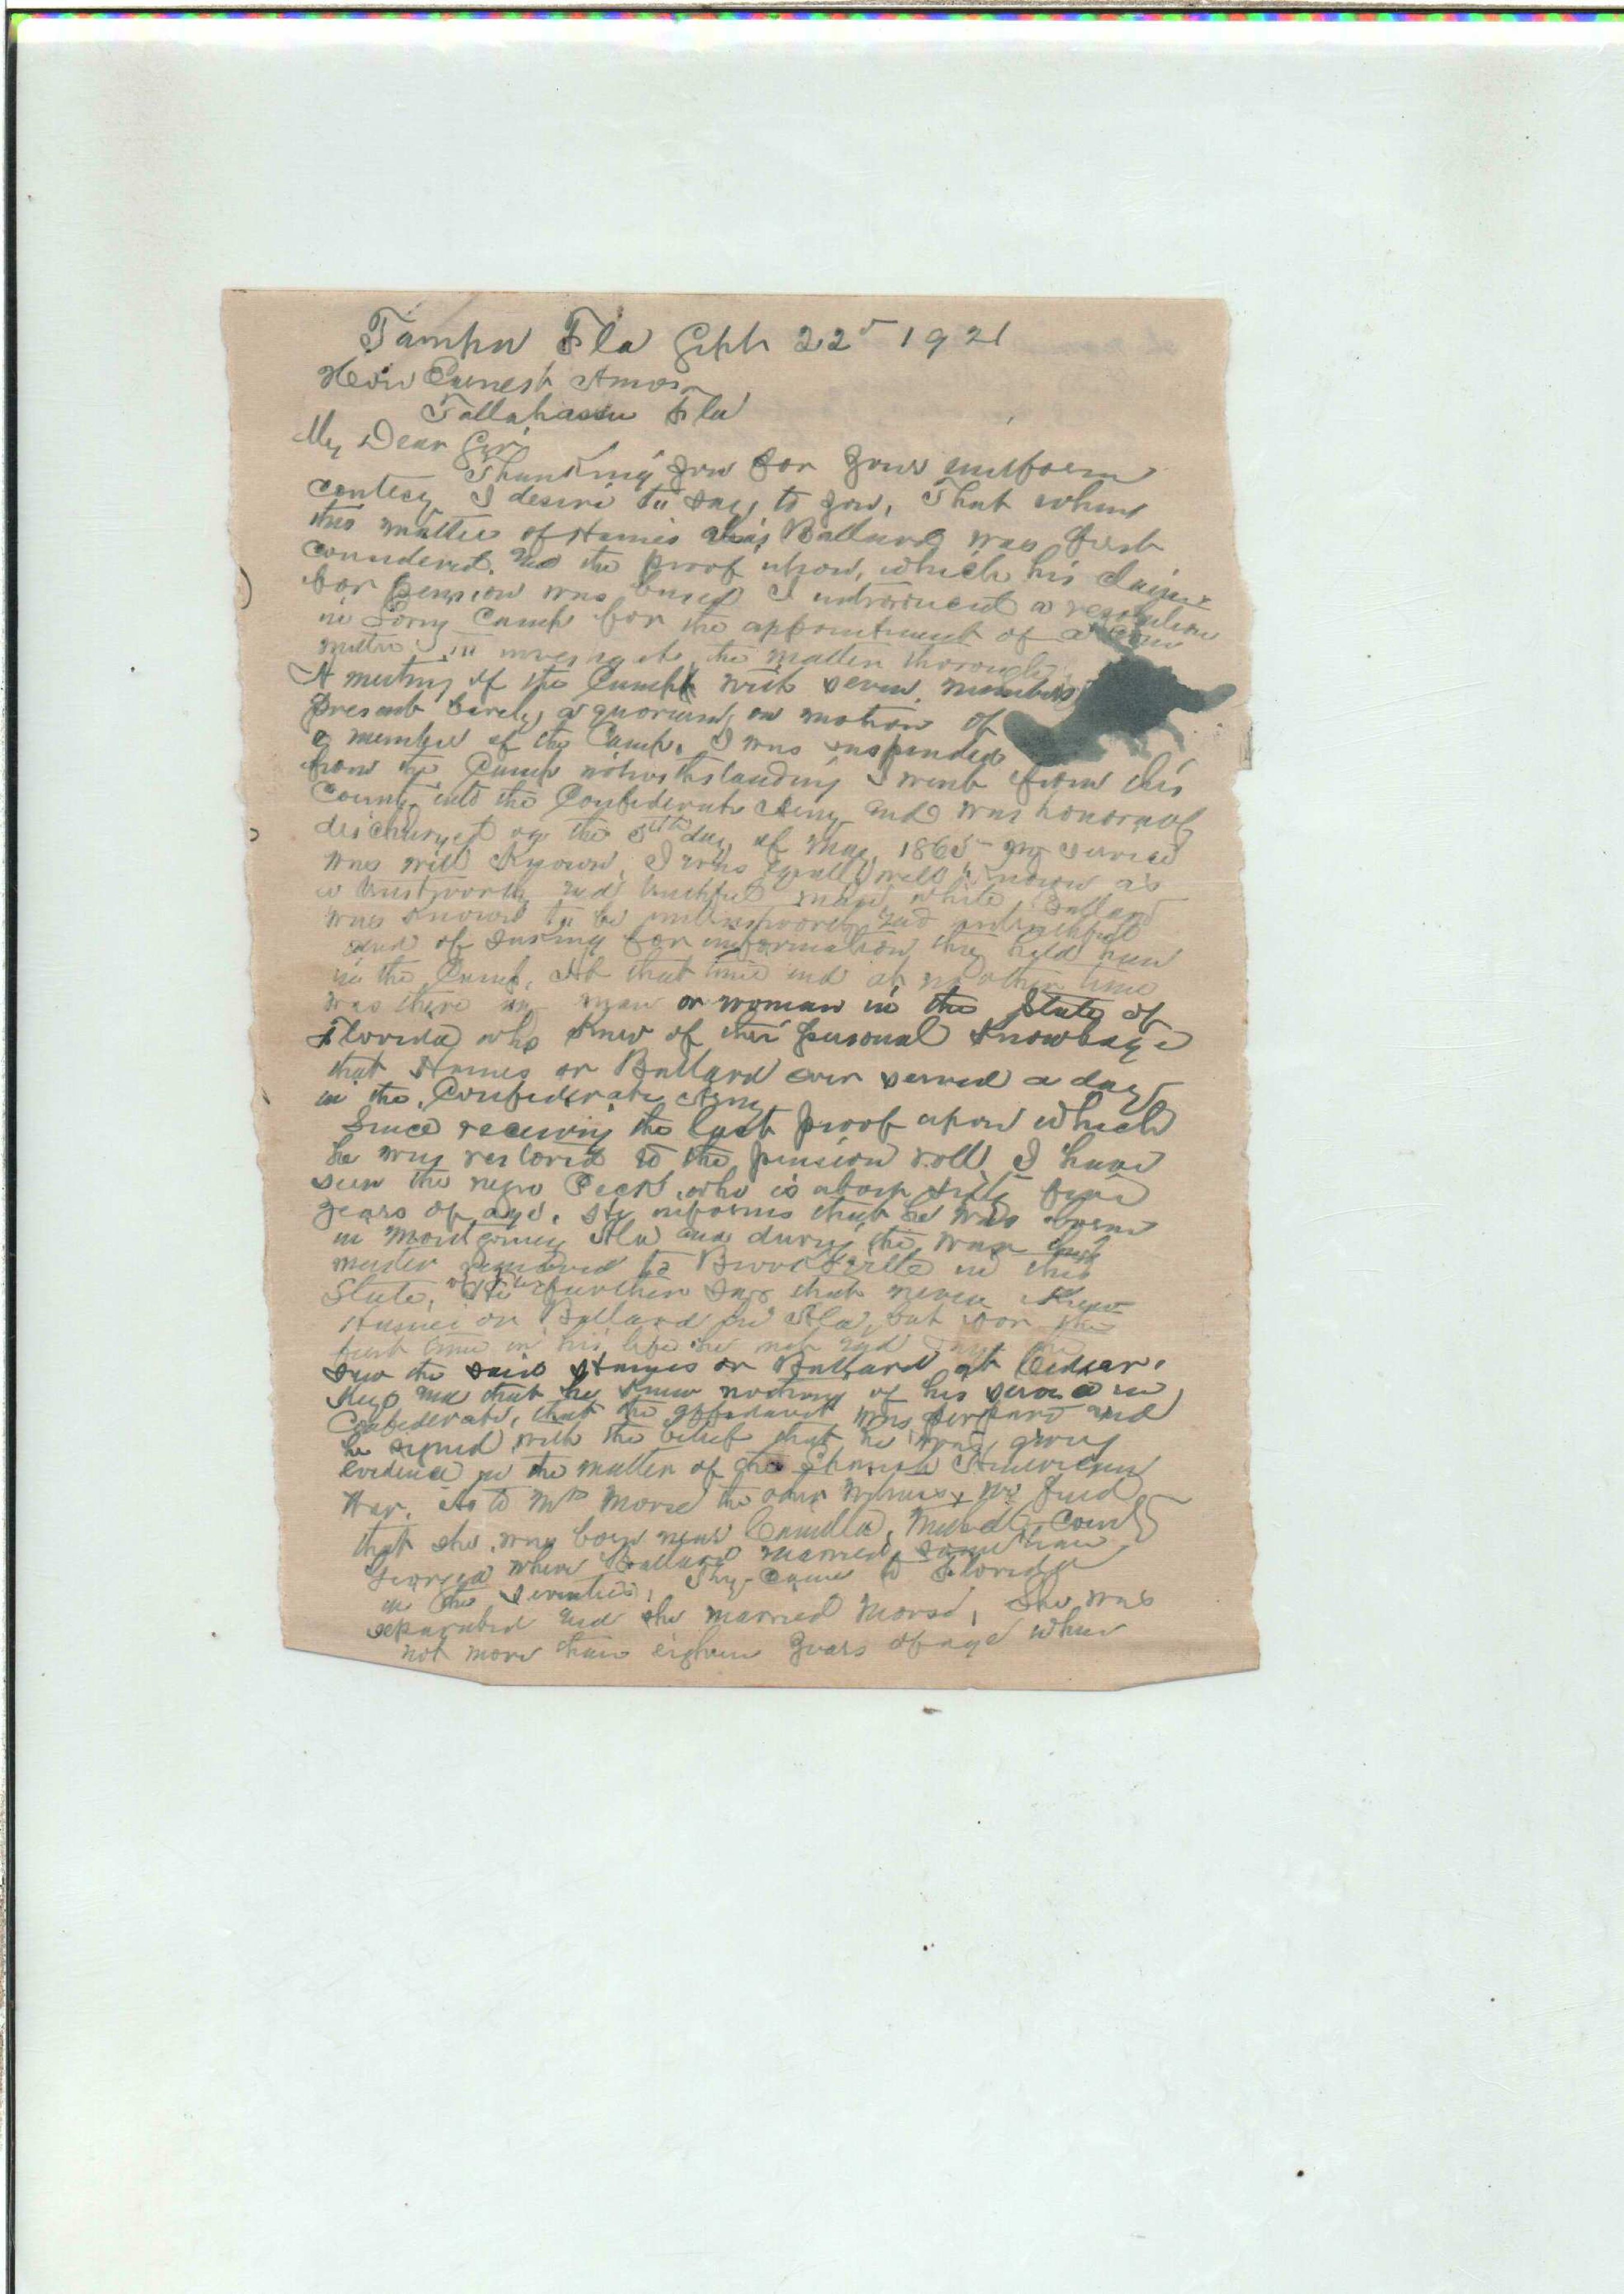 Tampa Fla Sept 22d 1921
Hon Ernest Amos
Tallahassee Fla
My Dear Sir
Thanking you for your uniform
I desire to say to you, That when
this matter of Hames alias Ballard was first
considered. and the proof upon, which his claim
for pension was based I introduced a resolution
in Camp for the appointment of a com
mittee to investigate the matter thorough
A meeting of the Camp with seven members
present barely a quorium, on motion of
a member of the Camp. I was suspended
from the Camp notwithstanding I went from this
County into the Confederate Army and was honorably
discharged on the 5th day of May 1865 my service
was well Known, I was equally well known as
a trustworthy and truthful man, while Ballard
was known to be untrustworthy and untruthful
of for information they held him
in the Camp, At that time and at no other time
was there any man or woman in the State of
Florida who knew of their personal Knowlage
that Hames or Ballard ever served a day
in the Confederate Army
Since receiving the last proof upon which
he was restored to the pension roll I have
seen the negro Peck, who is about sixty five
years of age. He informs that he was born
in Montgomery Ala and during the war his
master removed to Brooksville in this
State, He further says that never Knew
Hames or Ballard in Ala, but for the
first time in his life he met and
saw the said Hames or Ballard at Cedar
Keys and that he Knew nothing of his service in
Confederate, that the affidavit was prepared and
he signed with the belief that he was giving
evidence in the matter of the Spanish American
War. As to Mrs Morse the other witness, we find
that she was born near Camilla, Mitchell County
Georgia where Ballard married some time
in the seventies, They came to Florida
separated and she married Morse, She was
not more than eighteen years of age when